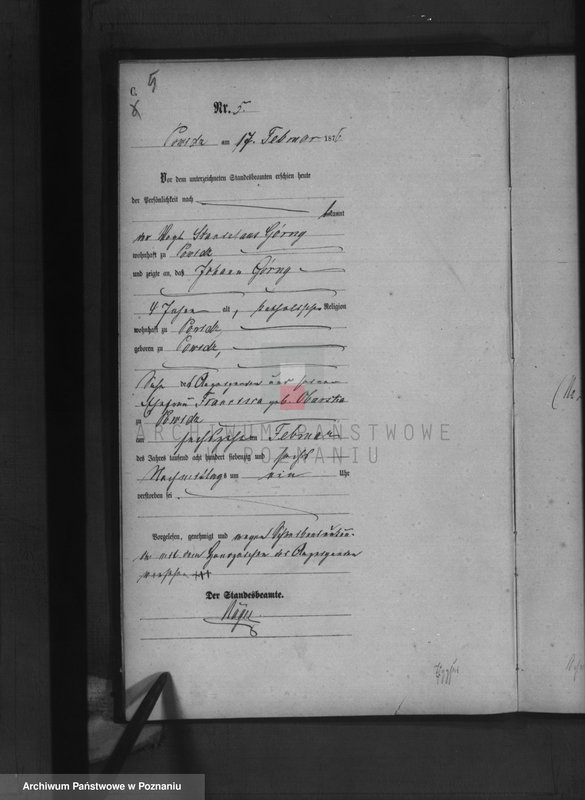 C. 5
Nr. 5.
Powidz am 17. Februar 1876
Vor dem unterzeichneten Standesbeamten erschien heute
der Persönlichkeit nach
bekannt
der Stanislaus Górny
wohnhaft zu Powidz
und zeigte an, daß Johann Górny
4 Jahre alt, katholischer Religion
wohnhaft zu Powidz,
geboren zu Powidz,
Sohn des Anzeigenden und seiner
Ehefrau Francisca geb.
zu Powidz
am sechszehnten Februar
des Jahres tausend acht hundert siebenzig und sechs
Nachmittags um ein Uhr
verstorben sei
Vorgelesen, genehmigt und wegen
der mit dem Handzeichen des Anzeigenden
versehen +++
Der Standesbeamte.
ARCHIWUM PAŃSTWOWE
W POZNANIU
Archiwum Państwowe w Poznaniu